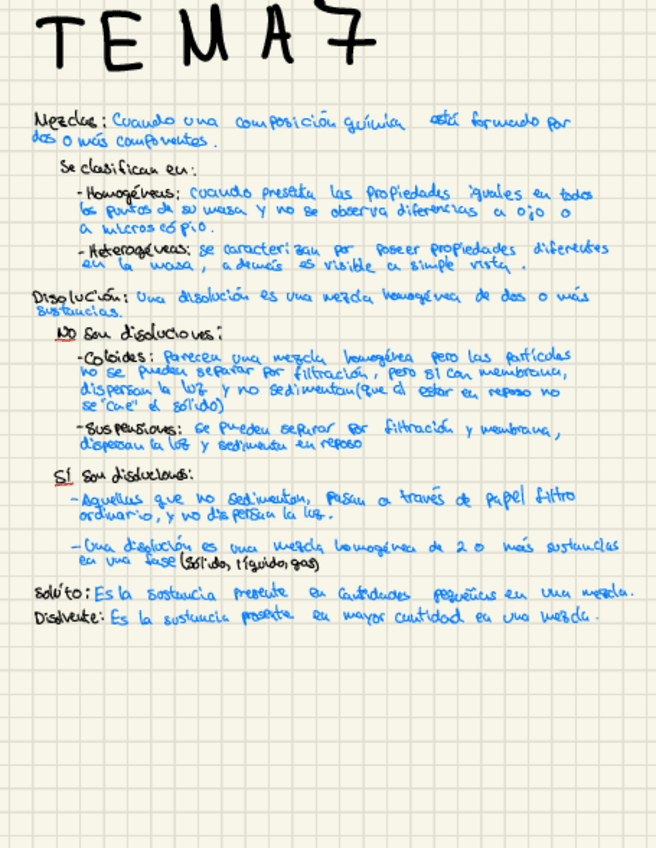 TEMA 7
Mezclas: Cuando una composición química está formado por
dos o más componentes.
Se clasifican en:
- Homogéneas: cuando presenta las propiedades iguales en todos
los puntos de su masa y no se observa diferencias a ojo o
a microscópio.
- Heterogéneas: se caracterizan por poseer propiedades diferentes
en la masa, además es visible a simple vista.
Disolución: Una disolución es una mezcla homogénea de dos o más
sustancias.
NO son disoluciones:
- Coloides: Parecen una mezcla homogénea pero las partículas
no se pueden separar por filtración, pero sí con membrana,
dispersan la luz y no sedimentan (que al estar en reposo no
se "cae" el sólido)
- Suspensiones: se pueden separar por filtración y membrana,
dispersan la luz y sedimenta en reposo
SÍ son disoluciones:
- Aquellas que no sedimentan, pasan a través de papel filtro
ordinario, y no dispersan la luz.
- Una disolución es una mezcla homogénea de 2 o más sustancias
en una fase (sólido, líquido, gas)
Solúto: Es la sustancia presente en cantidades pequeñas en una mezcla.
Disolvente: Es la sustancia presente en mayor cantidad en una mezcla.